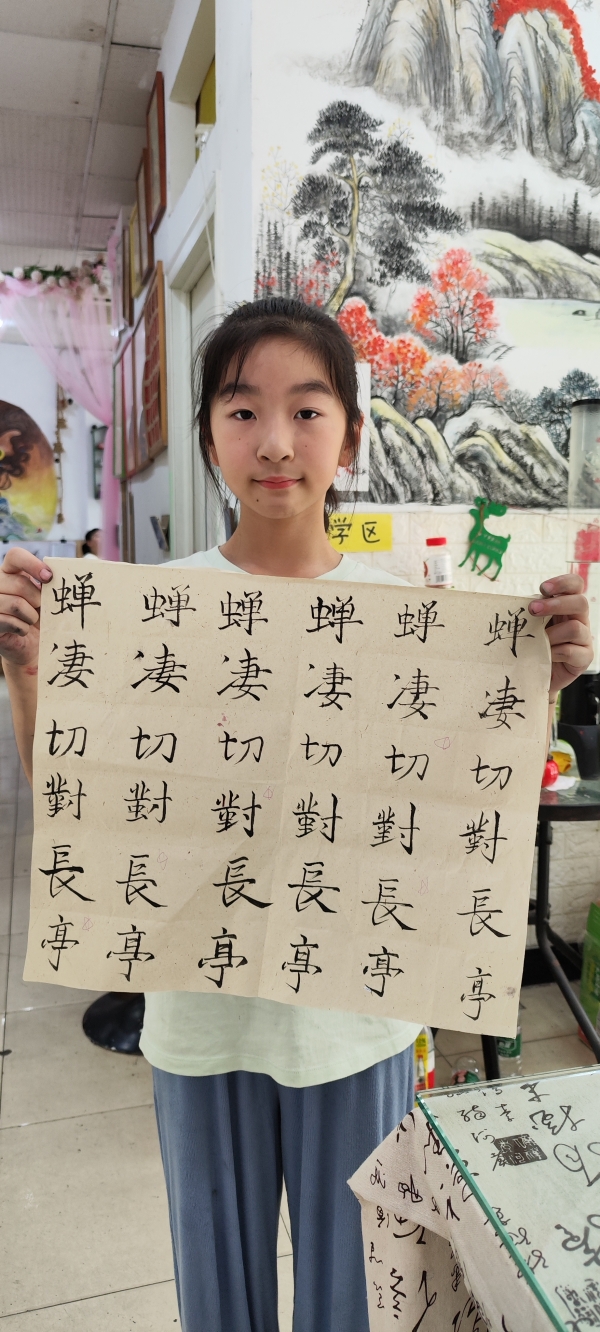 蝉凄切對長亭
蝉凄切對長亭
蝉凄切對長亭
蝉凄切對長亭
蝉凄切對長亭
蝉凄切對長亭
学区